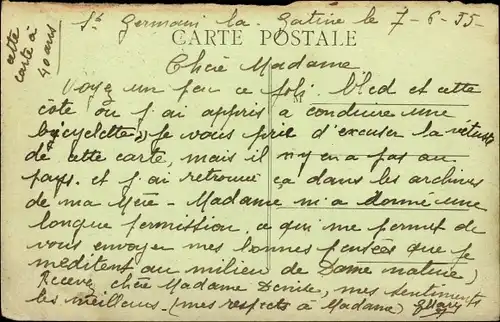 St Germain la Gatine le 7-6-55
cette
carte à
40 ans
CARTE POSTALE
Chère Madame
Voyez un peu ce joli bled et cette
côte où j'ai appris a conduire une
bycyclette, Je vous prie d'excuser la vétusté
de cette carte, mais il n'y en a pas au
pays. et j'ai retrouvé ça dans les archives
de ma Mère - Madame m'a donné une
longue permission, ce qui me permet de
vous envoyer mes bonnes pensées que je
meditent au milieu de Dame nature,
Recevez, chère Madame Denise, mes sentiments
les meilleurs. (mes respects à Madame)